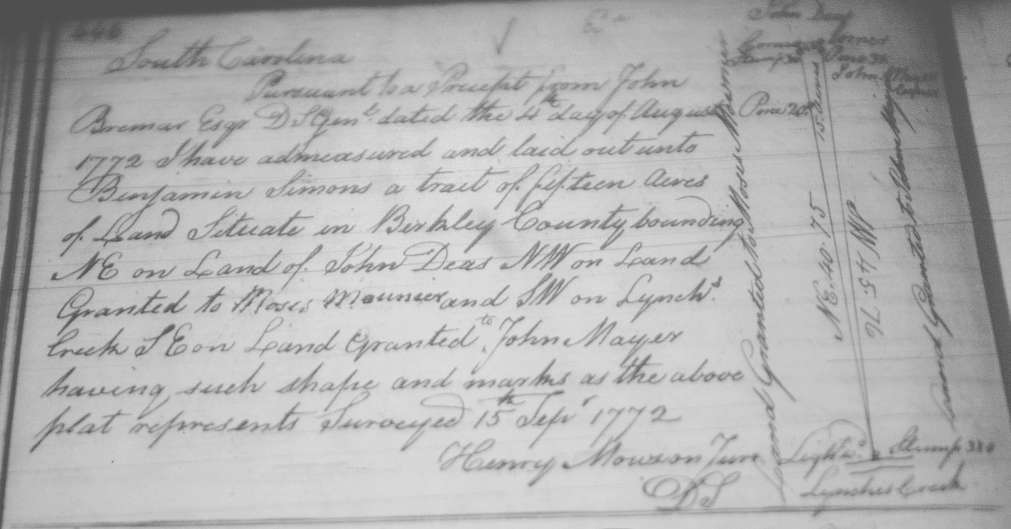 446
South Carolina
Pursuant to a Precept from John
Bremar Esqr D S Genl. dated the 4th day of August
1772 I have admeasured and laid out unto
Benjamin Simons a tract of fifteen Acres
of Land Situate in Berkley County bounding
NE on Land of John Deas NW on Land
Granted to Moses Mounier and SW on Lynchs.
Creek S E on Land Granted to John Mayer
having such shape and marks as the above
plat represents Surveyed 15th Sepr 1772
Henry Mouzon Junr
D S
John Deas
Corner
Pine 3x
John
Pine 20
15 Acres
Land Granted to Moses Mounier
NE 40 75
Land Granted to
Stump 3x0
Lynches Creek